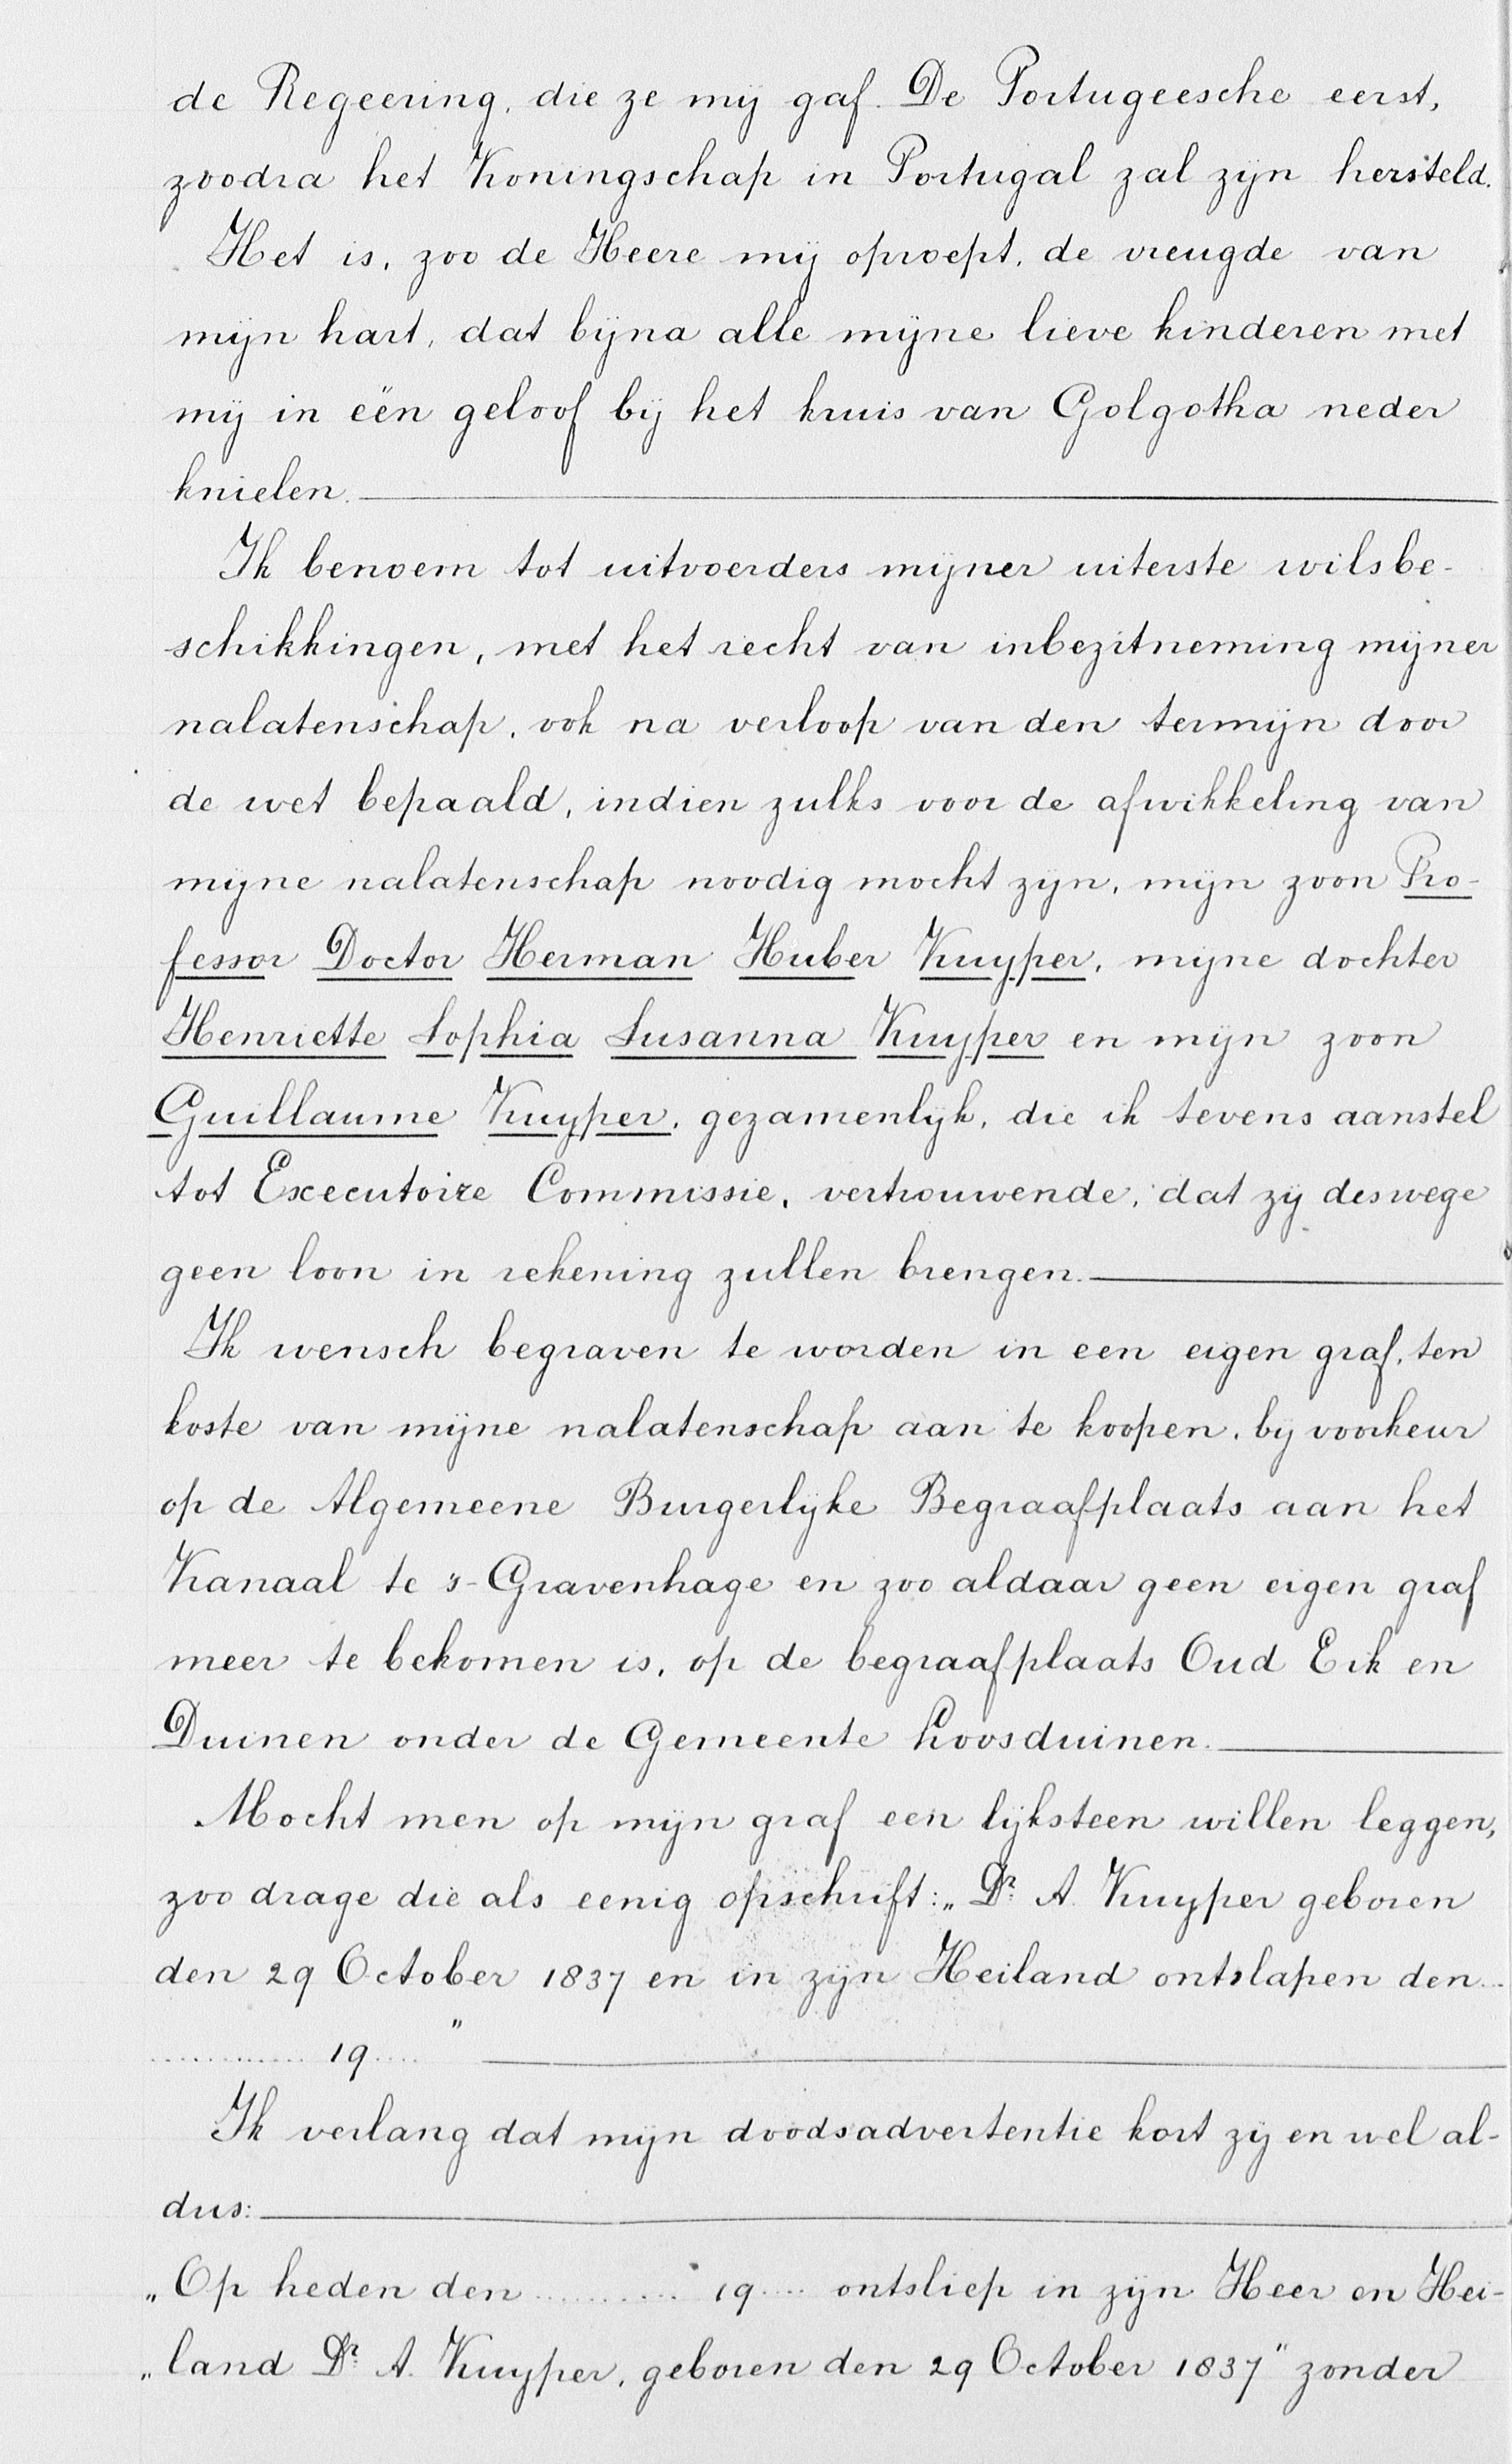 de Regeering, die ze mij gaf. De Portugeesche eerst,
zoodra het Koningschap in Portugal zal zijn hersteld.
Het is, zoo de Heere mij oproept, de vreugde van
mijn hart, dat bijna alle mijne lieve kinderen met
mij in één geloof bij het kruis van Golgotha neder
knielen.
Ik benoem tot uitvoerders mijner uiterste wilsbe-
schikkingen, met het recht van inbezitneming mijner
nalatenschap, ook na verloop van den termijn door
de wet bepaald, indien zulks voor de afwikkeling van
mijne nalatenschap noodig mocht zijn, mijn zoon Pro-
fessor Doctor Herman Huber Kuyper, mijne dochter
Henriette Sophia Susanna Kuyper en mijn zoon
Guillaume Kuyper, gezamenlijk, die ik tevens aanstel
tot Executoire Commissie, vertrouwende, dat zij deswege
geen loon in rekening zullen brengen.
Ik wensch begraven te worden in een eigen graf, ten
koste van mijne nalatenschap aan te koopen, bij voorkeur
op de Algemeene Burgerlijke Begraafplaats aan het
Kanaal te 's-Gravenhage en zoo aldaar geen eigen graf
meer te bekomen is, op de begraafplaats Oud Eik en
Duinen onder de Gemeente Loosduinen.
Mocht men op mijn graf een lijksteen willen leggen,
zoo drage die als eenig opschrift: „Dr. A. Kuyper geboren
den 29 October 1837 en in zijn Heiland ontslapen den ...
............ 19.... "
Ik verlang dat mijn doodsadvertentie kort zij en wel al-
dus:
„Op heden den .......... 19.... ontsliep in zijn Heer en Hei-
„land Dr. A. Kuyper, geboren den 29 October 1837" zonder